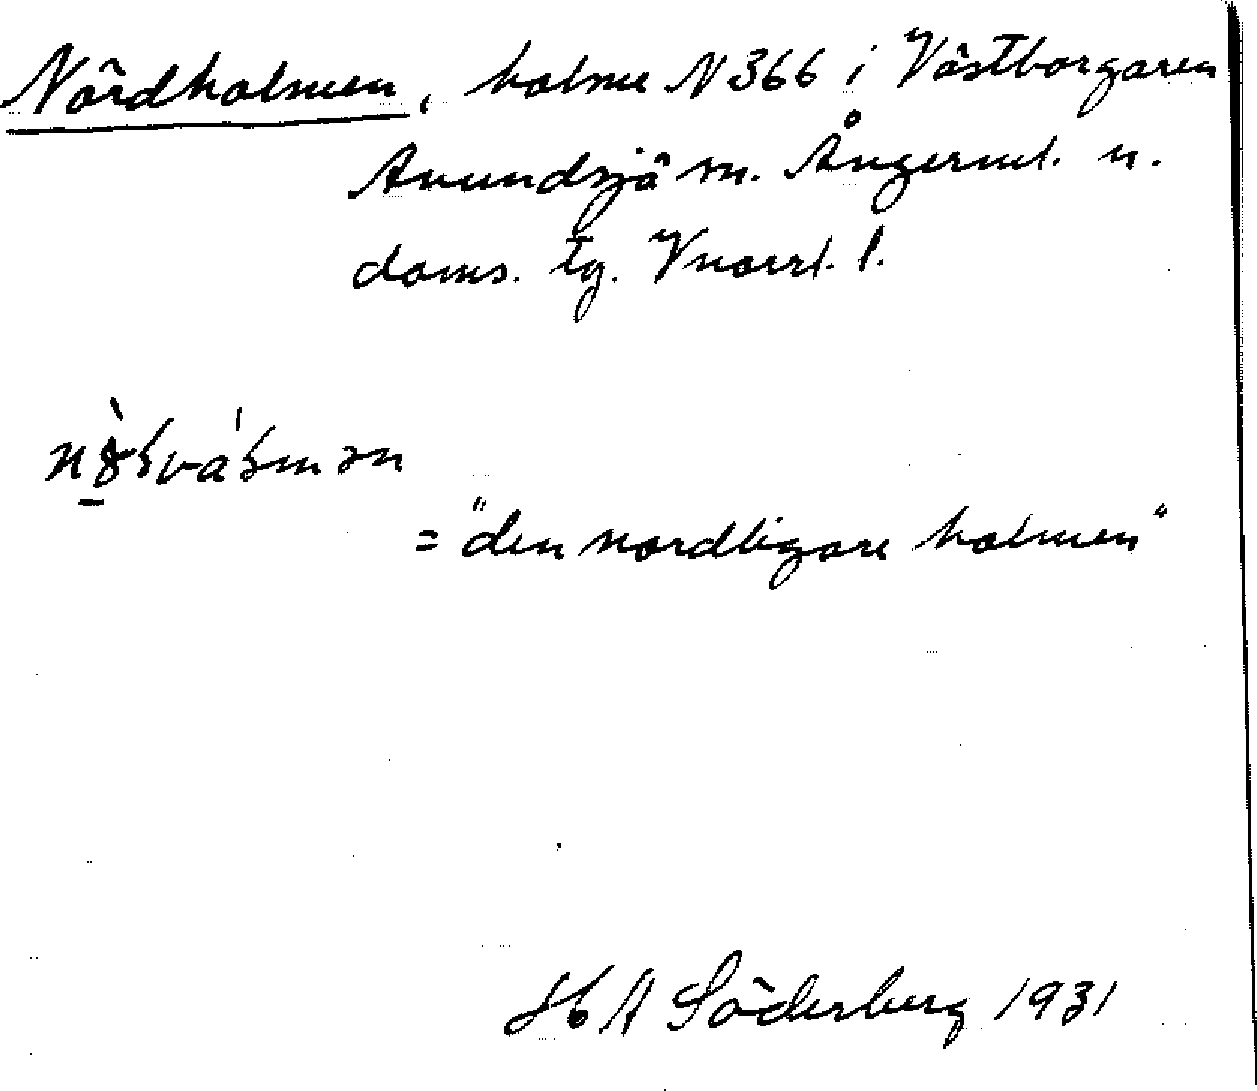 Nördholmen, holme N 366 i Västborgaren
Anundsjö sn. Ångerml. n.
doms. tg. Vnorrl. l.
= "den nordligare holmen"
H A Söderberg 1931